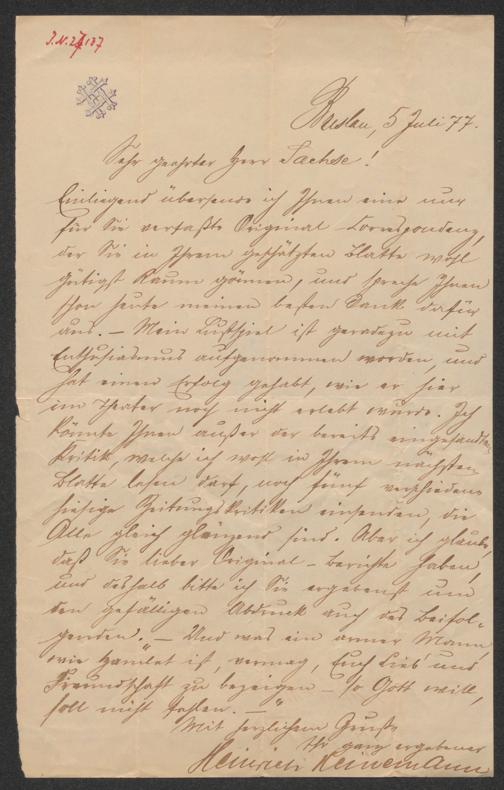 J.N. 27137
Breslau, 5 Juli 77.
Sehr geehrter Herr Sachse!
Einliegend übersende ich Ihnen eine nur
für Sie verfaßte Original-Correspondenz,
der Sie in Ihrem geschätzten Blatte wohl
gütigst Raum gönnen, und spreche Ihnen
schon heute meinen besten Dank dafür
aus. – Mein Lustspiel ist geradezu mit
Enthusiasmus aufgenommen worden, und
hat einen Erfolg gehabt, wie er hier
im Theater noch nicht erlebt wurde. Ich
könnte Ihnen außer der bereits eingesandten
Kritik, welche ich wohl in Ihrem nächsten
Blatte lesen darf, noch fünf verschiedene
hiesige Zeitungskritiken einsenden, die
Alle gleich glänzend sind. Aber ich glaube,
daß Sie lieber Original-Berichte haben,
und deshalb bitte ich Sie ergebenst um
den gefälligen Abdruck auch des Beifol-
genden. – Und was ein armer Mann,
wie Hamlet ist, vermag, Euch Lieb und
Freundschaft zu bezeigen – so Gott will,
soll nicht fehlen. – "
Mit herzlichem Gruße
Ihr ganz ergebener
Heinrich Heinemann